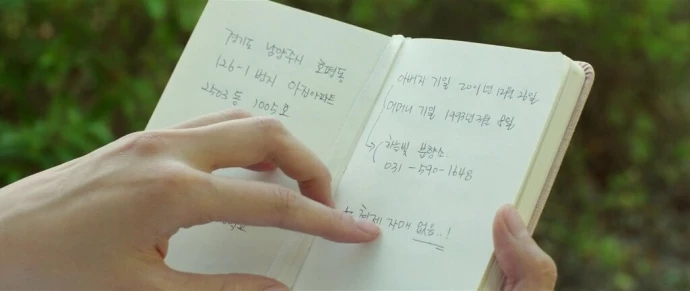 경기도 남양주시 호평동
126-1 번지 아진아파트
2503동 1005호
아버지 기일 2011년 12월 26일
어머니 기일 1999년 8일
하늘빛 봉안소
031-590-1648
형제 자매 없음..!